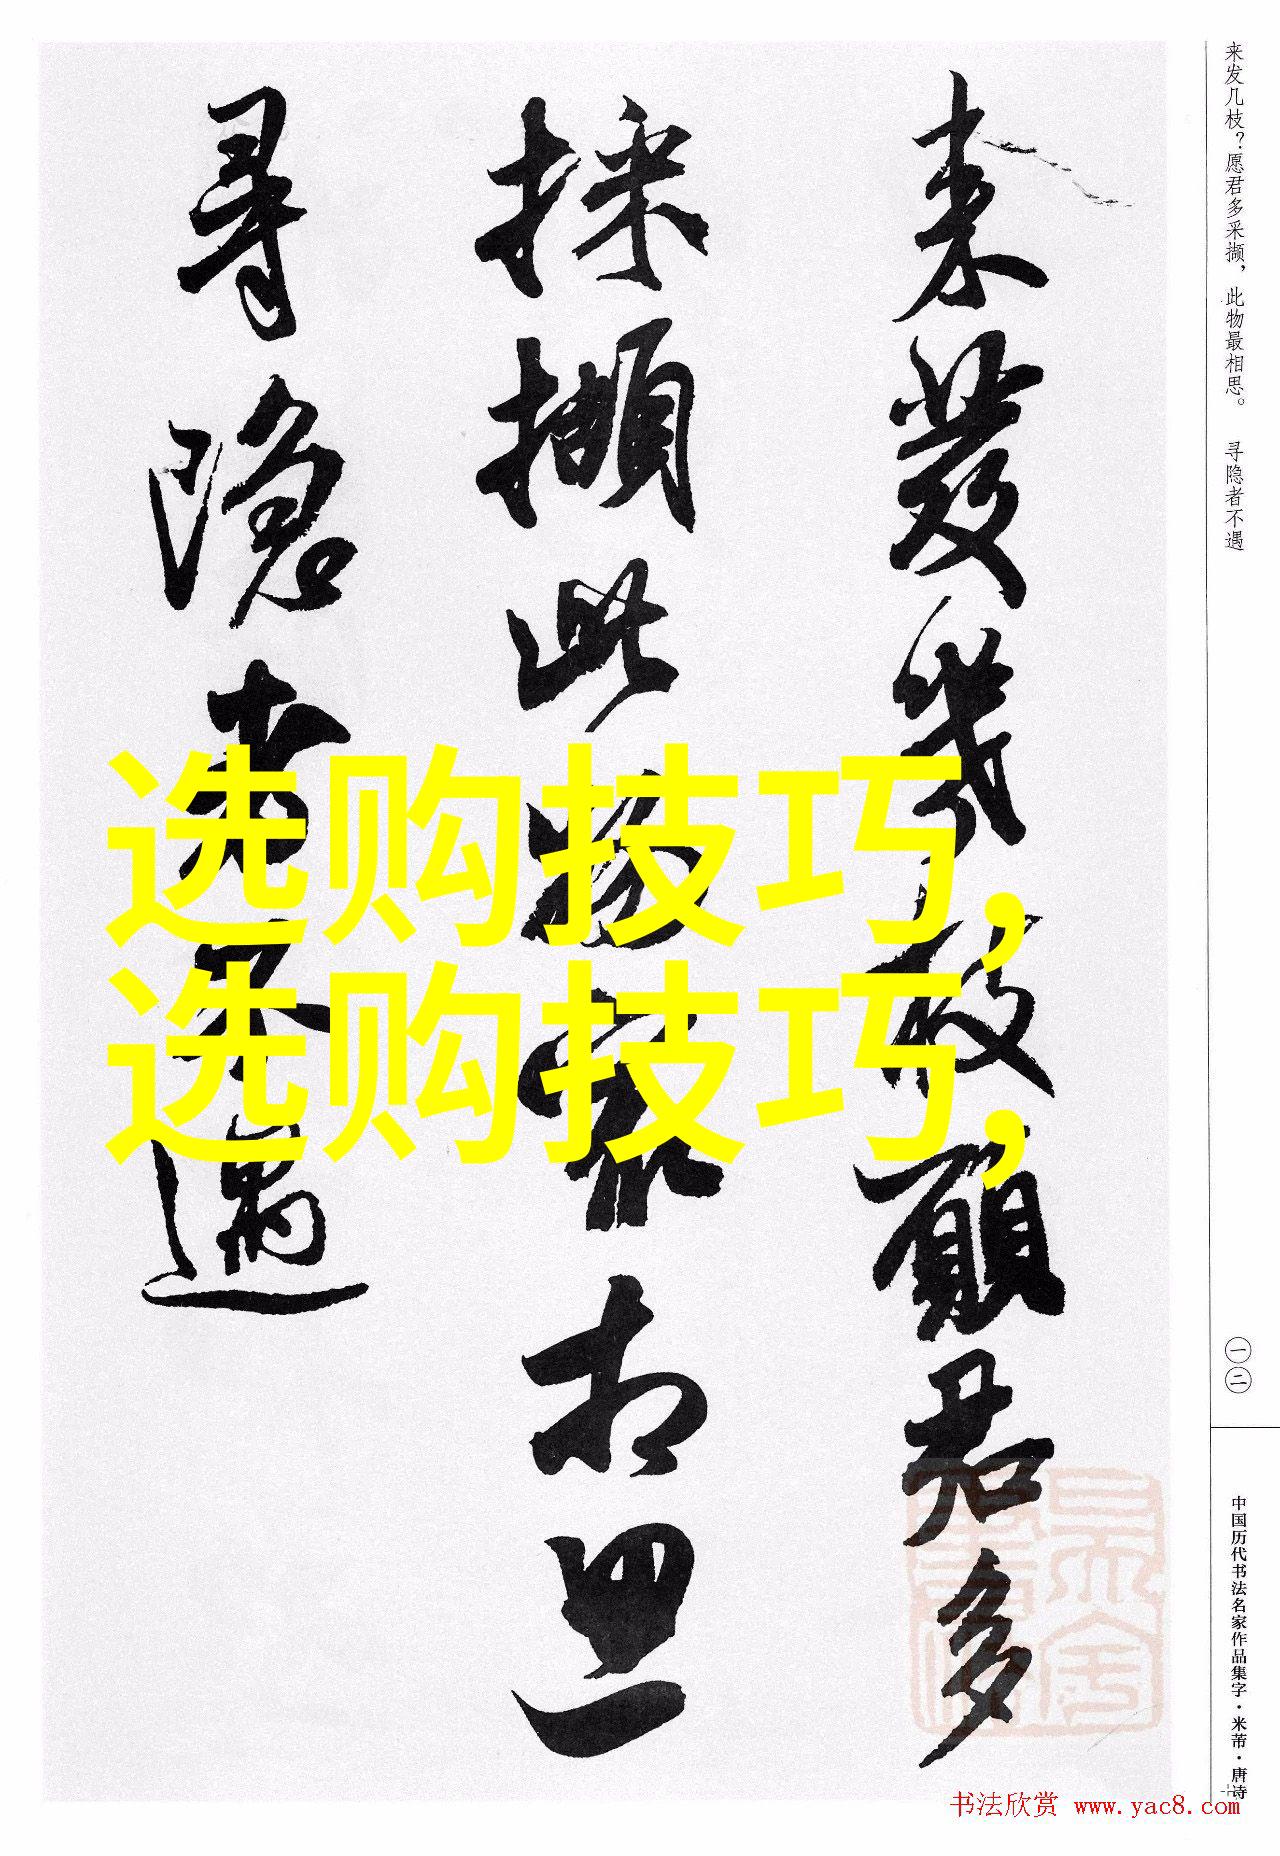 来发几枝？愿君多采撷，此物最相思。 寻隐者不遇
來發幾枝願君多
採擷此物最相思
尋隱者不遇
选购技巧,
选购技巧,
一二
中国历代书法名家作品集字·米芾·唐诗
书法欣赏 www.yac8.com